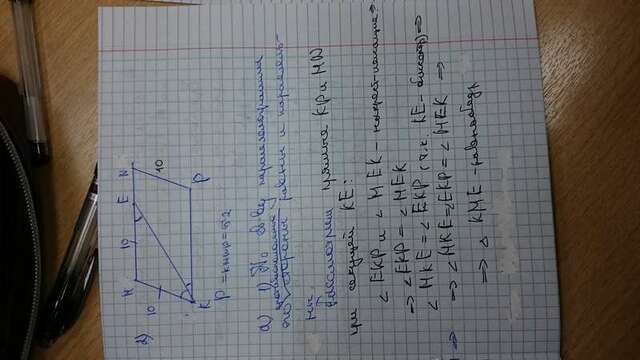 2)
М 10 E N
10
10
K P
P =кмнр=52
а) 1) По св-ву параллелограмма
противоположные
его стороны равны и параллель-
ны.
Рассмотрим прямые KP и MN
при секущей KE:
∠EKP и ∠MEK - накрест-лежащие ⇒
⇒ ∠EKP = ∠MEK
∠MKE = ∠EKP (т.к. KE - биссектр) ⇒
⇒ ∠MKE = ∠EKP = ∠MEK ⇒
⇒ △ KME - равнобедр